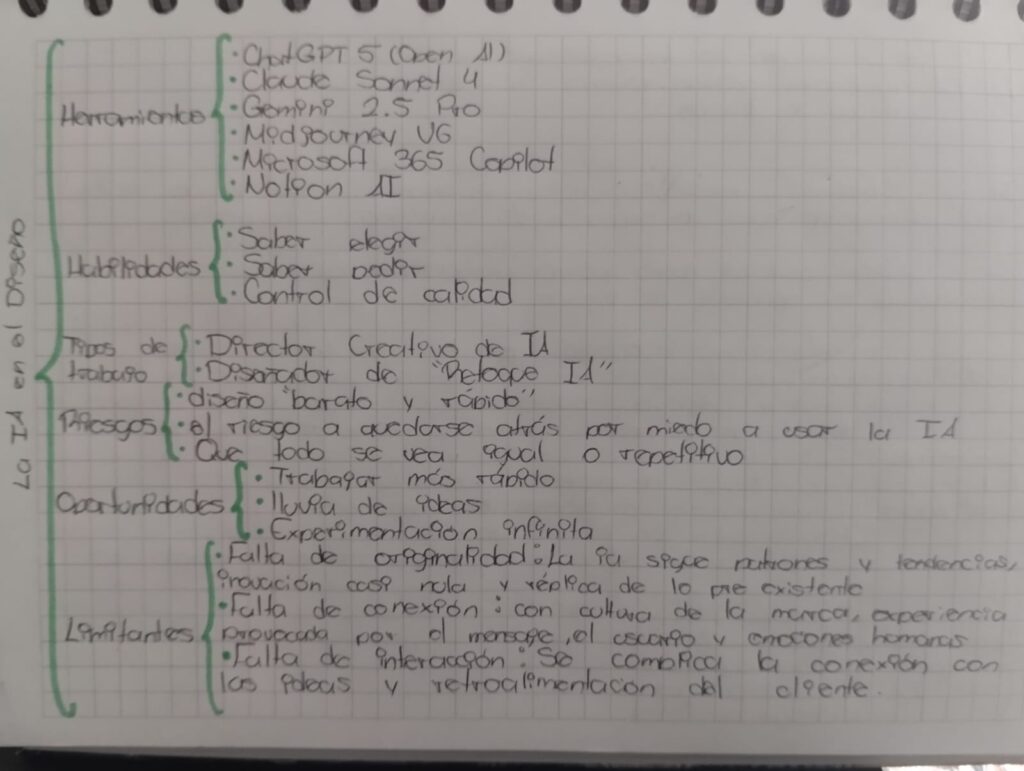 La IA en el Diseño
Herramientas
• ChatGPT 5 (Open AI)
• Claude Sonnet 4
• Gemini 2.5 Pro
• Midjourney V6
• Microsoft 365 Copilot
• Notion AI
Habilidades
• Saber elegir
• Saber pedir
• Control de calidad
Tipos de trabajo
• Director Creativo de IA
• Diseñador de "Retoque IA"
Riesgos
• diseño "barato y rápido"
• el riesgo a quedarse atrás por miedo a usar la IA
• Que todo se vea igual o repetitivo
Oportunidades
• Trabajar más rápido
• lluvia de ideas
• Experimentación infinita
Limitantes
• Falta de originalidad: La ia sigue patrones y tendencias,
inovación casi nula y réplica de lo pre existente
• Falta de conexión: con cultura de la marca, experiencia
provocada por el mensaje, el usuario y emociones humanas
• Falta de interacción: Se complica la conexión con
las ideas y retroalimentacion del cliente.